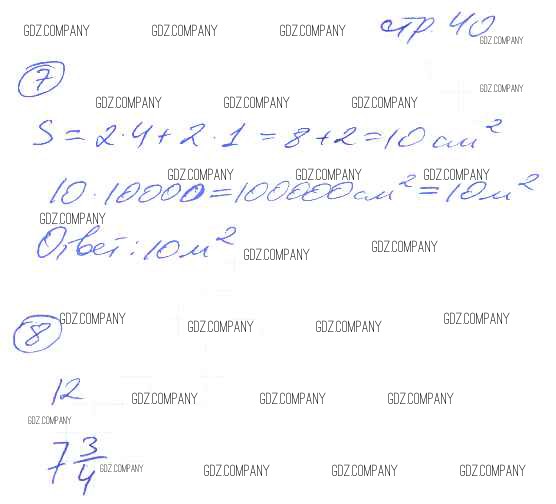 стр. 40
GDZ.COMPANY GDZ.COMPANY GDZ.COMPANY GDZ.COMPANY
7 GDZ.COMPANY
GDZ.COMPANY GDZ.COMPANY GDZ.COMPANY
S = 2·4 + 2·1 = 8 + 2 = 10 см²
GDZ.COMPANY GDZ.COMPANY GDZ.COMPANY
10·10000 = 100000 см² = 10 м²
GDZ.COMPANY
Ответ: 10 м²
GDZ.COMPANY GDZ.COMPANY
8 GDZ.COMPANY GDZ.COMPANY GDZ.COMPANY GDZ.COMPANY
12
GDZ.COMPANY GDZ.COMPANY GDZ.COMPANY
GDZ.COMPANY
7 3/4
GDZ.COMPANY GDZ.COMPANY GDZ.COMPANY GDZ.COMPANY